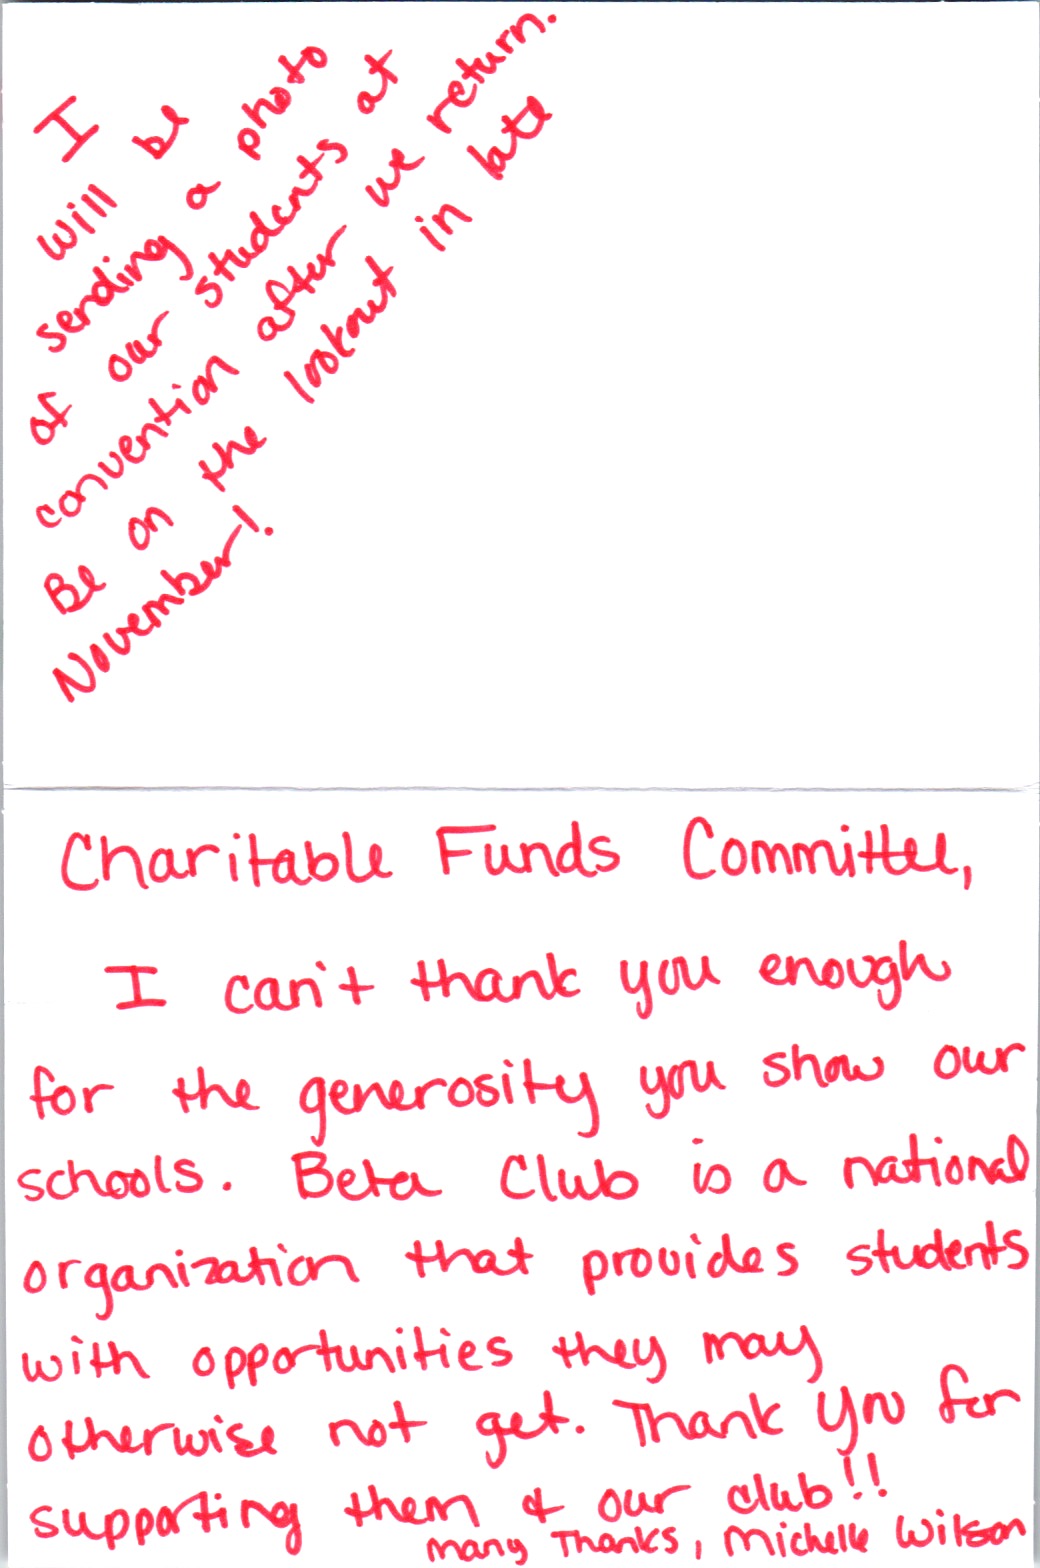 I
will be
sending a photo
of our students at
convention after we return.
Be on the lookout in late
November!
Charitable Funds Committee,
I can't thank you enough
for the generosity you show our
schools. Beta Club is a national
organization that provides students
with opportunities they may
otherwise not get. Thank you for
supporting them & our club!!
Many Thanks, Michelle Wilson